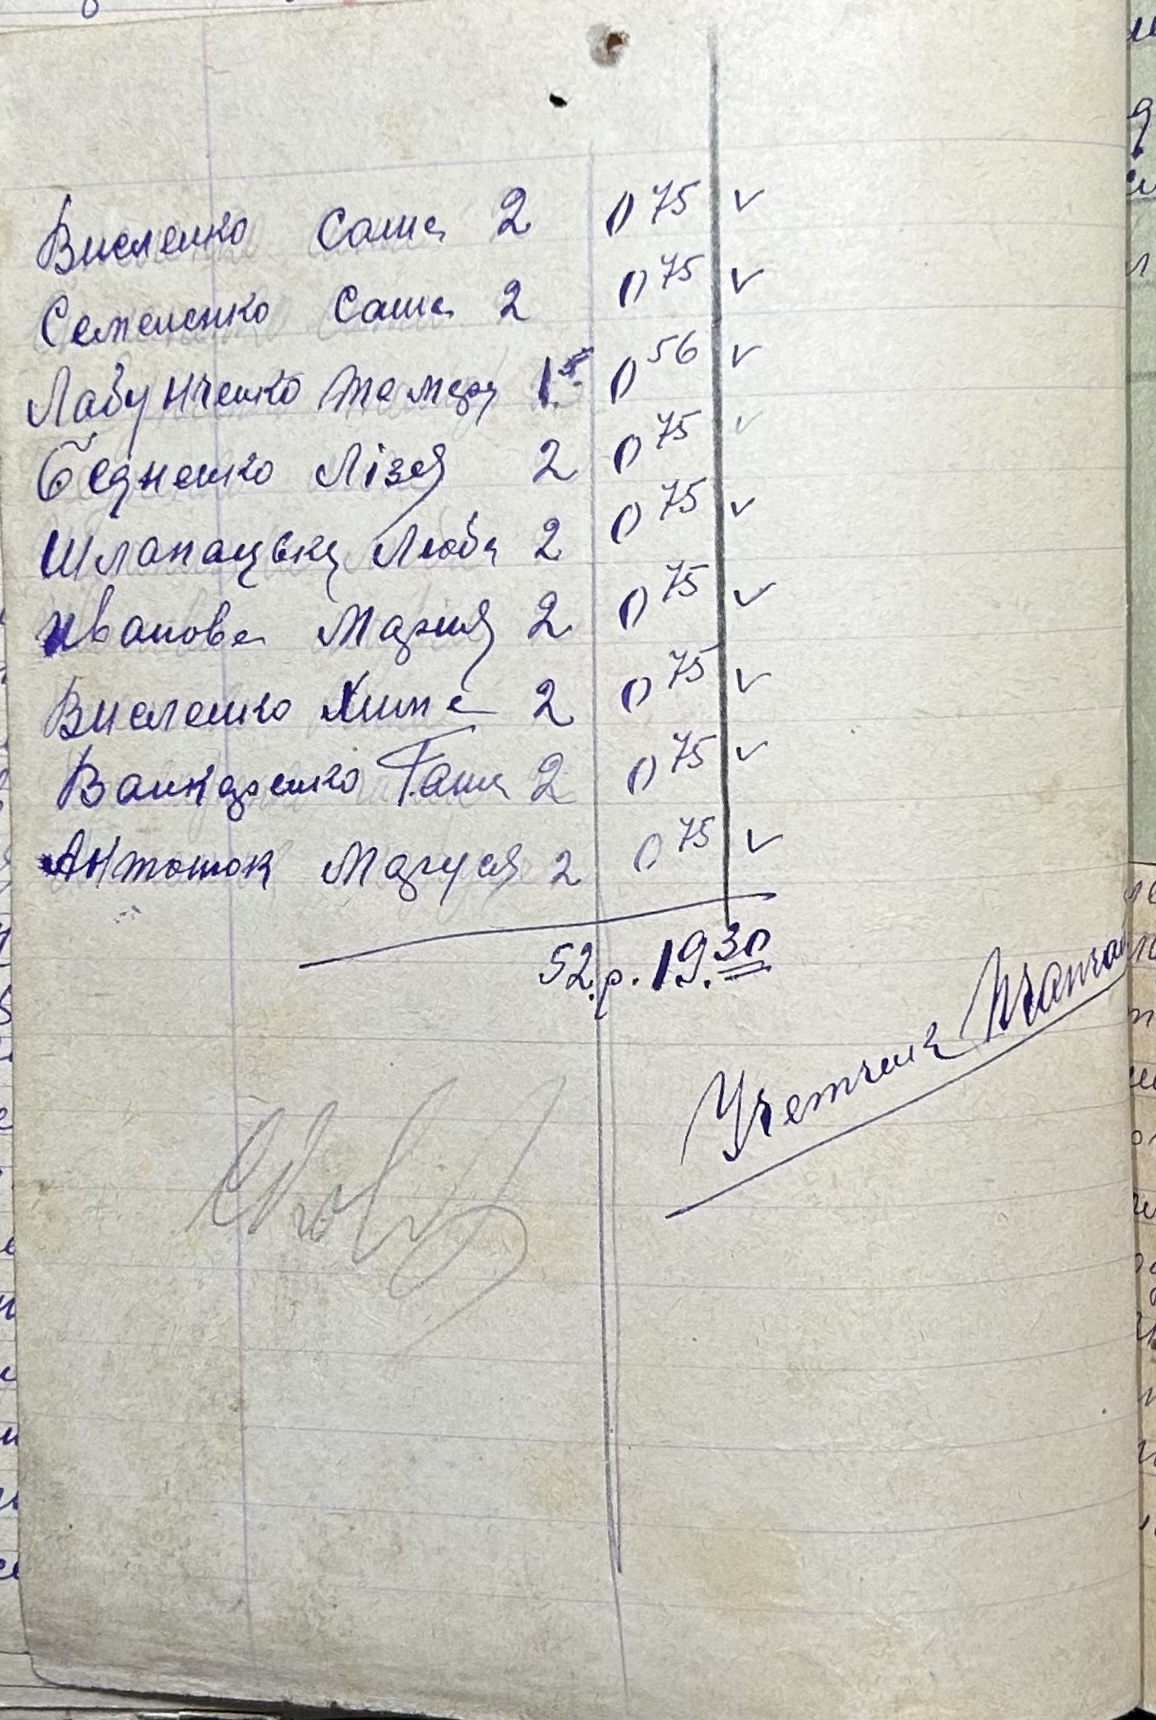 Висленко Саша 2 0 75 v
Семененко Саша 2 0 75 v
Лабунченко Тамара 1.5 0 56 v
Бедненко Лізя 2 0 75 v
Шлапацька Люба 2 0 75 v
Иванова Мария 2 0 75 v
Висленко Хима 2 0 75 v
Ванжаренко Ганя 2 0 75 v
Антонюк Маруся 2 0 75 v
52.р. 19.30
Учетчик